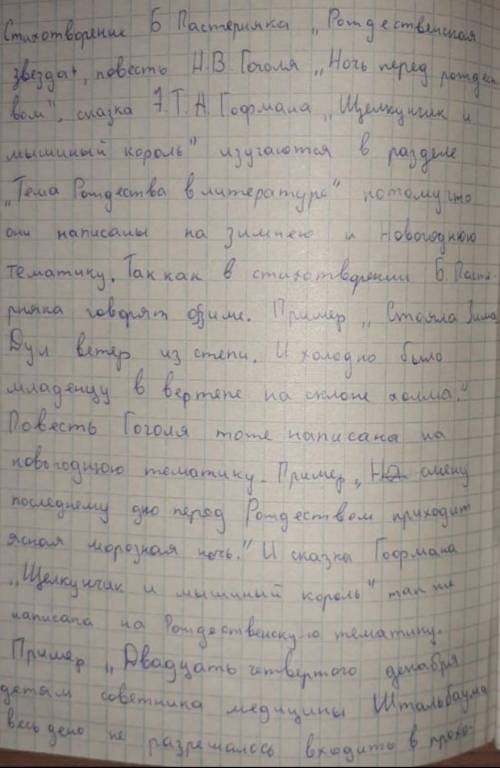 Стихотворение Б Пастернака „Рождественская
звезда", повесть Н.В. Гоголя „Ночь перед рождес
вом", сказка Э.Т.А. Гофмана „Щелкунчик и
мышиный король" изучаются в разделе
„Тема Рождества в литературе" потому что
они написаны на зимнею и новогоднюю
тематику. Так как в стихотворении Б. Пасте-
рнака говорят о зиме. Пример „Стояла Зима
Дул ветер из степи. И холодно было
младенцу в вертепе на склоне холма."
Повесть Гоголя тоже написана на
новогоднюю тематику. Пример „На смену
последнему дню перед Рождеством приходит
ясная морозная ночь." И сказка Гофмана
„Щелкунчик и мышиный король" так же
написана на Рождественскую тематику.
Пример „Двадцать четвертого декабря
детям советника медицины Штальбаума
весь день не разрешалось входить в прохо-